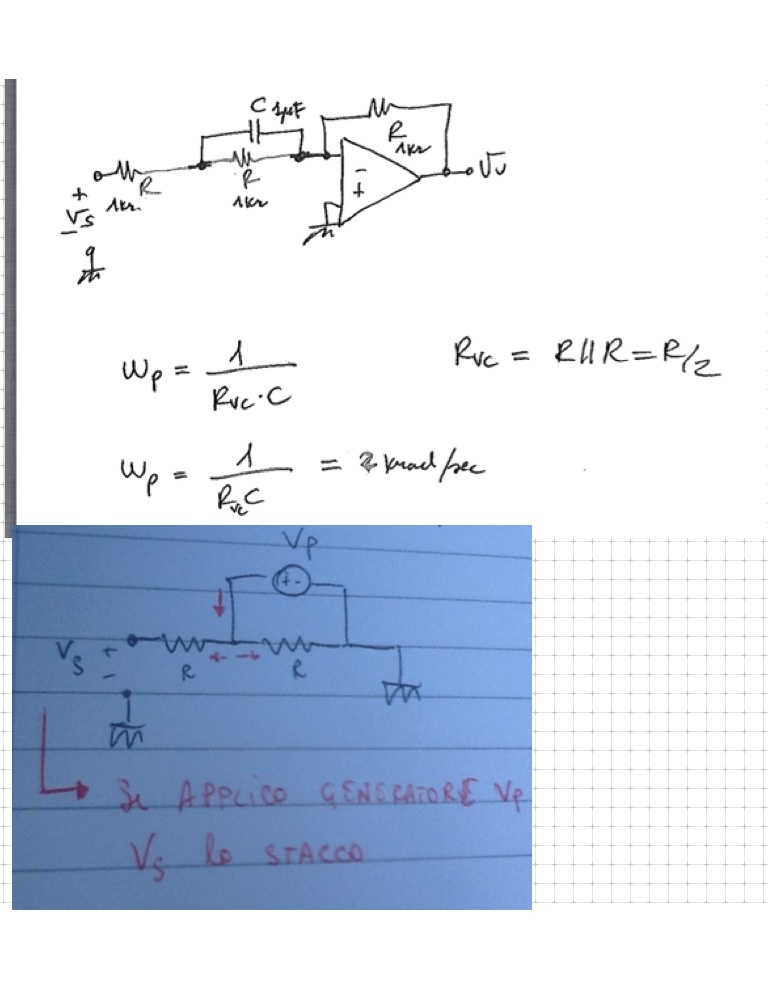 C 1μF
R
1kΩ
R
1kΩ
R
1kΩ
+
Vs
-
-
+
Vu
ωp = 1 / (Rvc · C)
Rvc = R || R = R/2
ωp = 1 / (Rvc C) = 2 krad/sec
Vp
+ -
Vs + -
R
R
SE APPLICO GENERATORE Vp
Vs lo STACCO